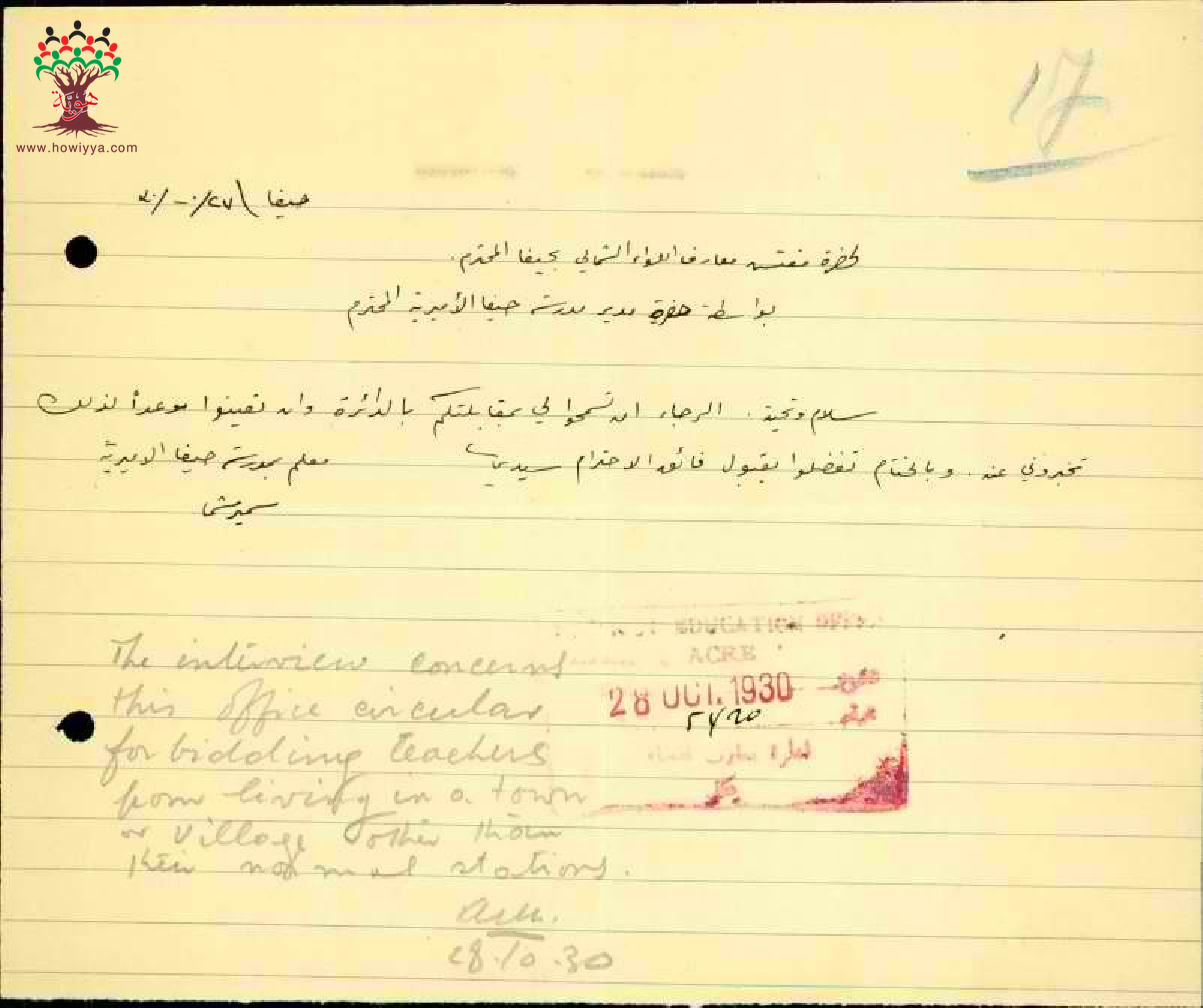 هوية
www.howiyya.com
17
حيفا ٢٧/١٠/٣٠
لحضرة مفتش معارف اللواء الشمالي بحيفا المحترم.
بواسطة حضرة مدير مدرسة حيفا الأميرية المحترم
سلام وتحية. الرجاء ان تسمحوا لي بمقابلتكم بالدائرة وان تعينوا موعداً لذلك
تخبروني عنه. وبالختام تفضلوا بقبول فائق الاحترام سيدي
معلم بمدرسة حيفا الاميرية
سمير
EDUCATION OFFI
ACRE
28 OCT. 1930
The interview concerns
this office circular
forbidding teachers
from living in a town
or village other than
their normal stations.
28.10.30